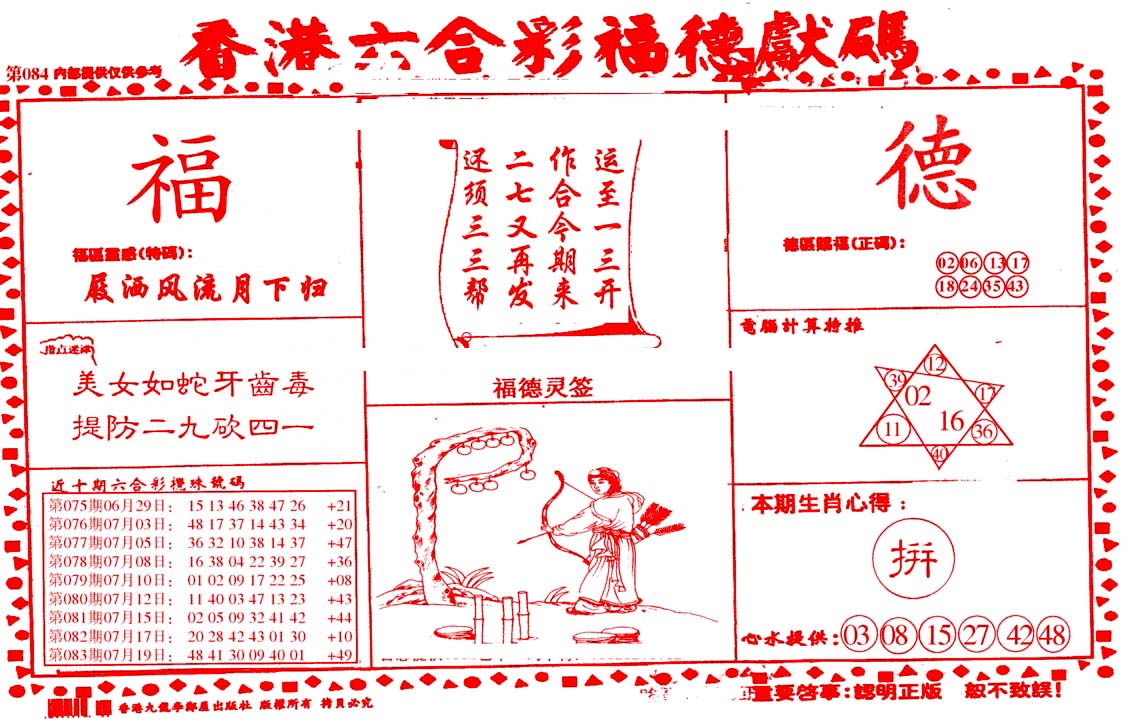 香港六合彩福德獻碼
第084 内部提供仅供参考
福
福區靈感(特碼):
屐洒风流月下归
指点迷津
美女如蛇牙齒毒
提防二九砍四一
近十期六合彩攪珠號碼
第075期06月29日: 15 13 46 38 47 26 +21
第076期07月03日: 48 17 37 14 43 34 +20
第077期07月05日: 36 32 10 38 14 37 +47
第078期07月08日: 16 38 04 22 39 27 +36
第079期07月10日: 01 02 09 17 22 25 +08
第080期07月12日: 11 40 03 47 13 23 +43
第081期07月15日: 02 05 09 32 41 42 +44
第082期07月17日: 20 28 42 43 01 30 +10
第083期07月19日: 48 41 30 09 40 01 +49
运至一三开
作合今期来
二七又再发
还须三三帮
福德灵签
德
德區賜福(正碼):
02 06 13 17
18 24 35 43
電腦計算特推
12
39 02 17
11 16 36
40
本期生肖心得:
拼
心水提供: 03 08 15 27 42 48
重要啓事:認明正版 恕不致誤!
香港九龍李鄭屋出版社 版權所有 拷貝必究